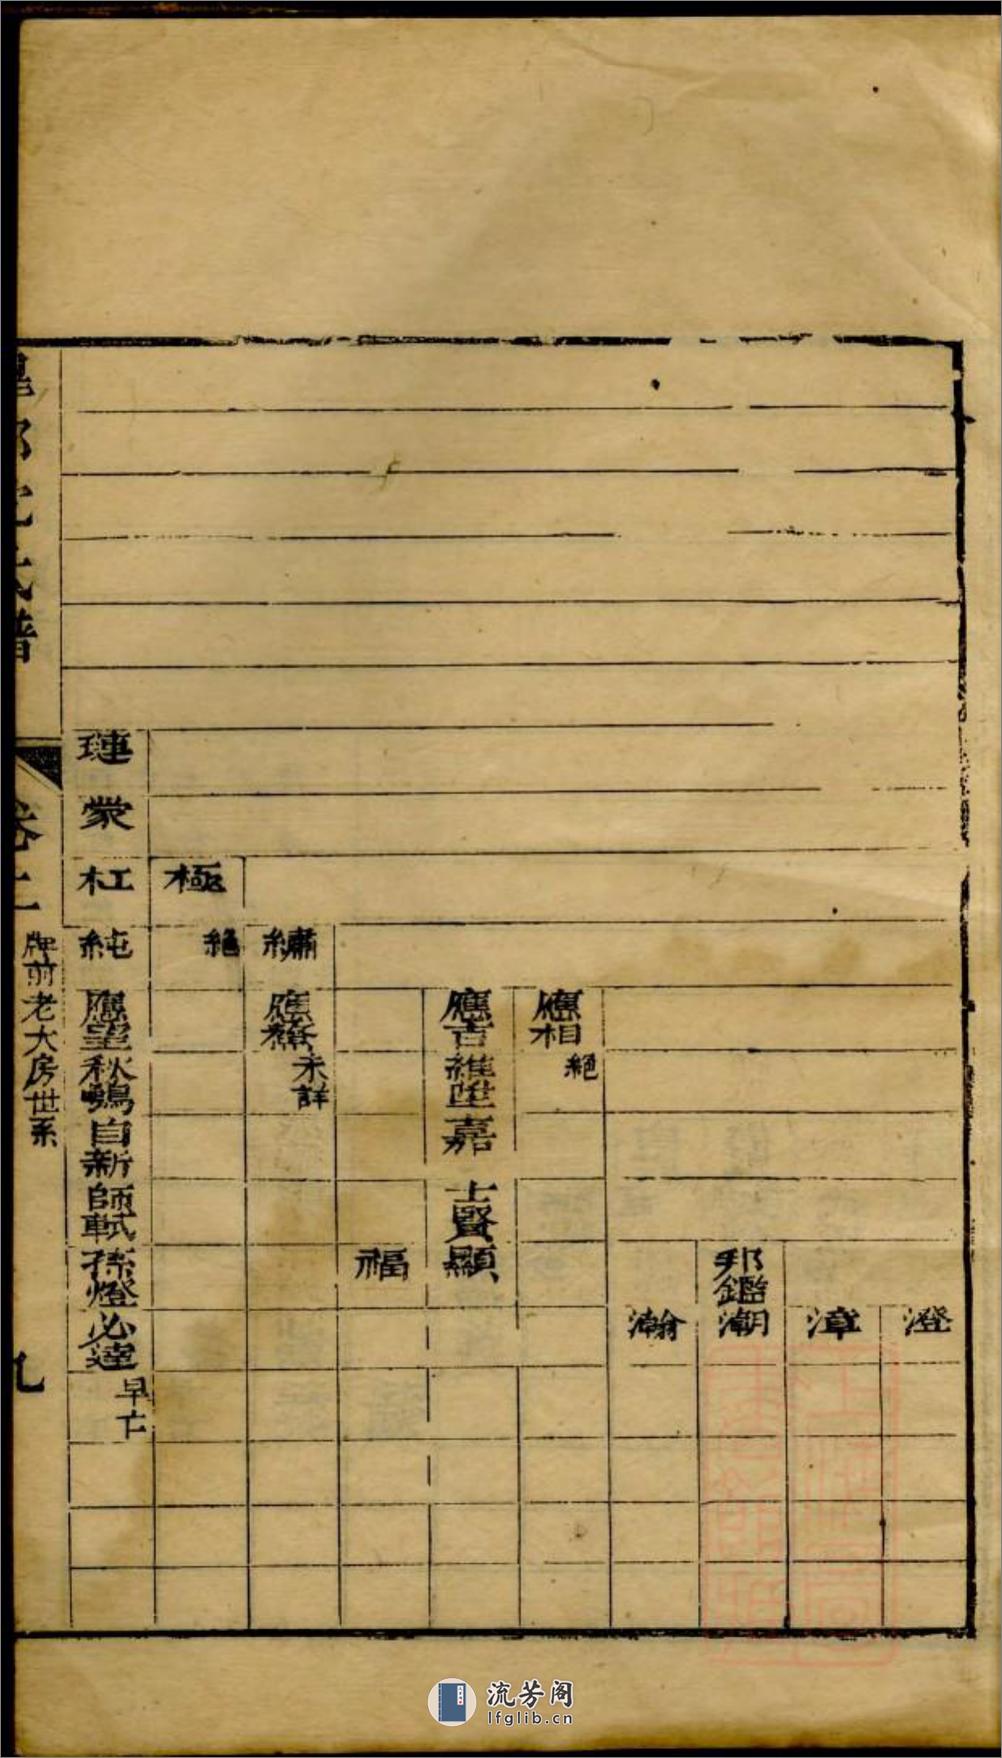 澄
漳
邦鑑潮
瀚
應相 絕
應吉維陞嘉士賢顯
福
繡應蕪未詳
極絕
璉蒙杠純應望秋鶚自新師軾孫燈必達早亡
卷二
牌前老大房世系
九
流芳阁
lfglib.cn